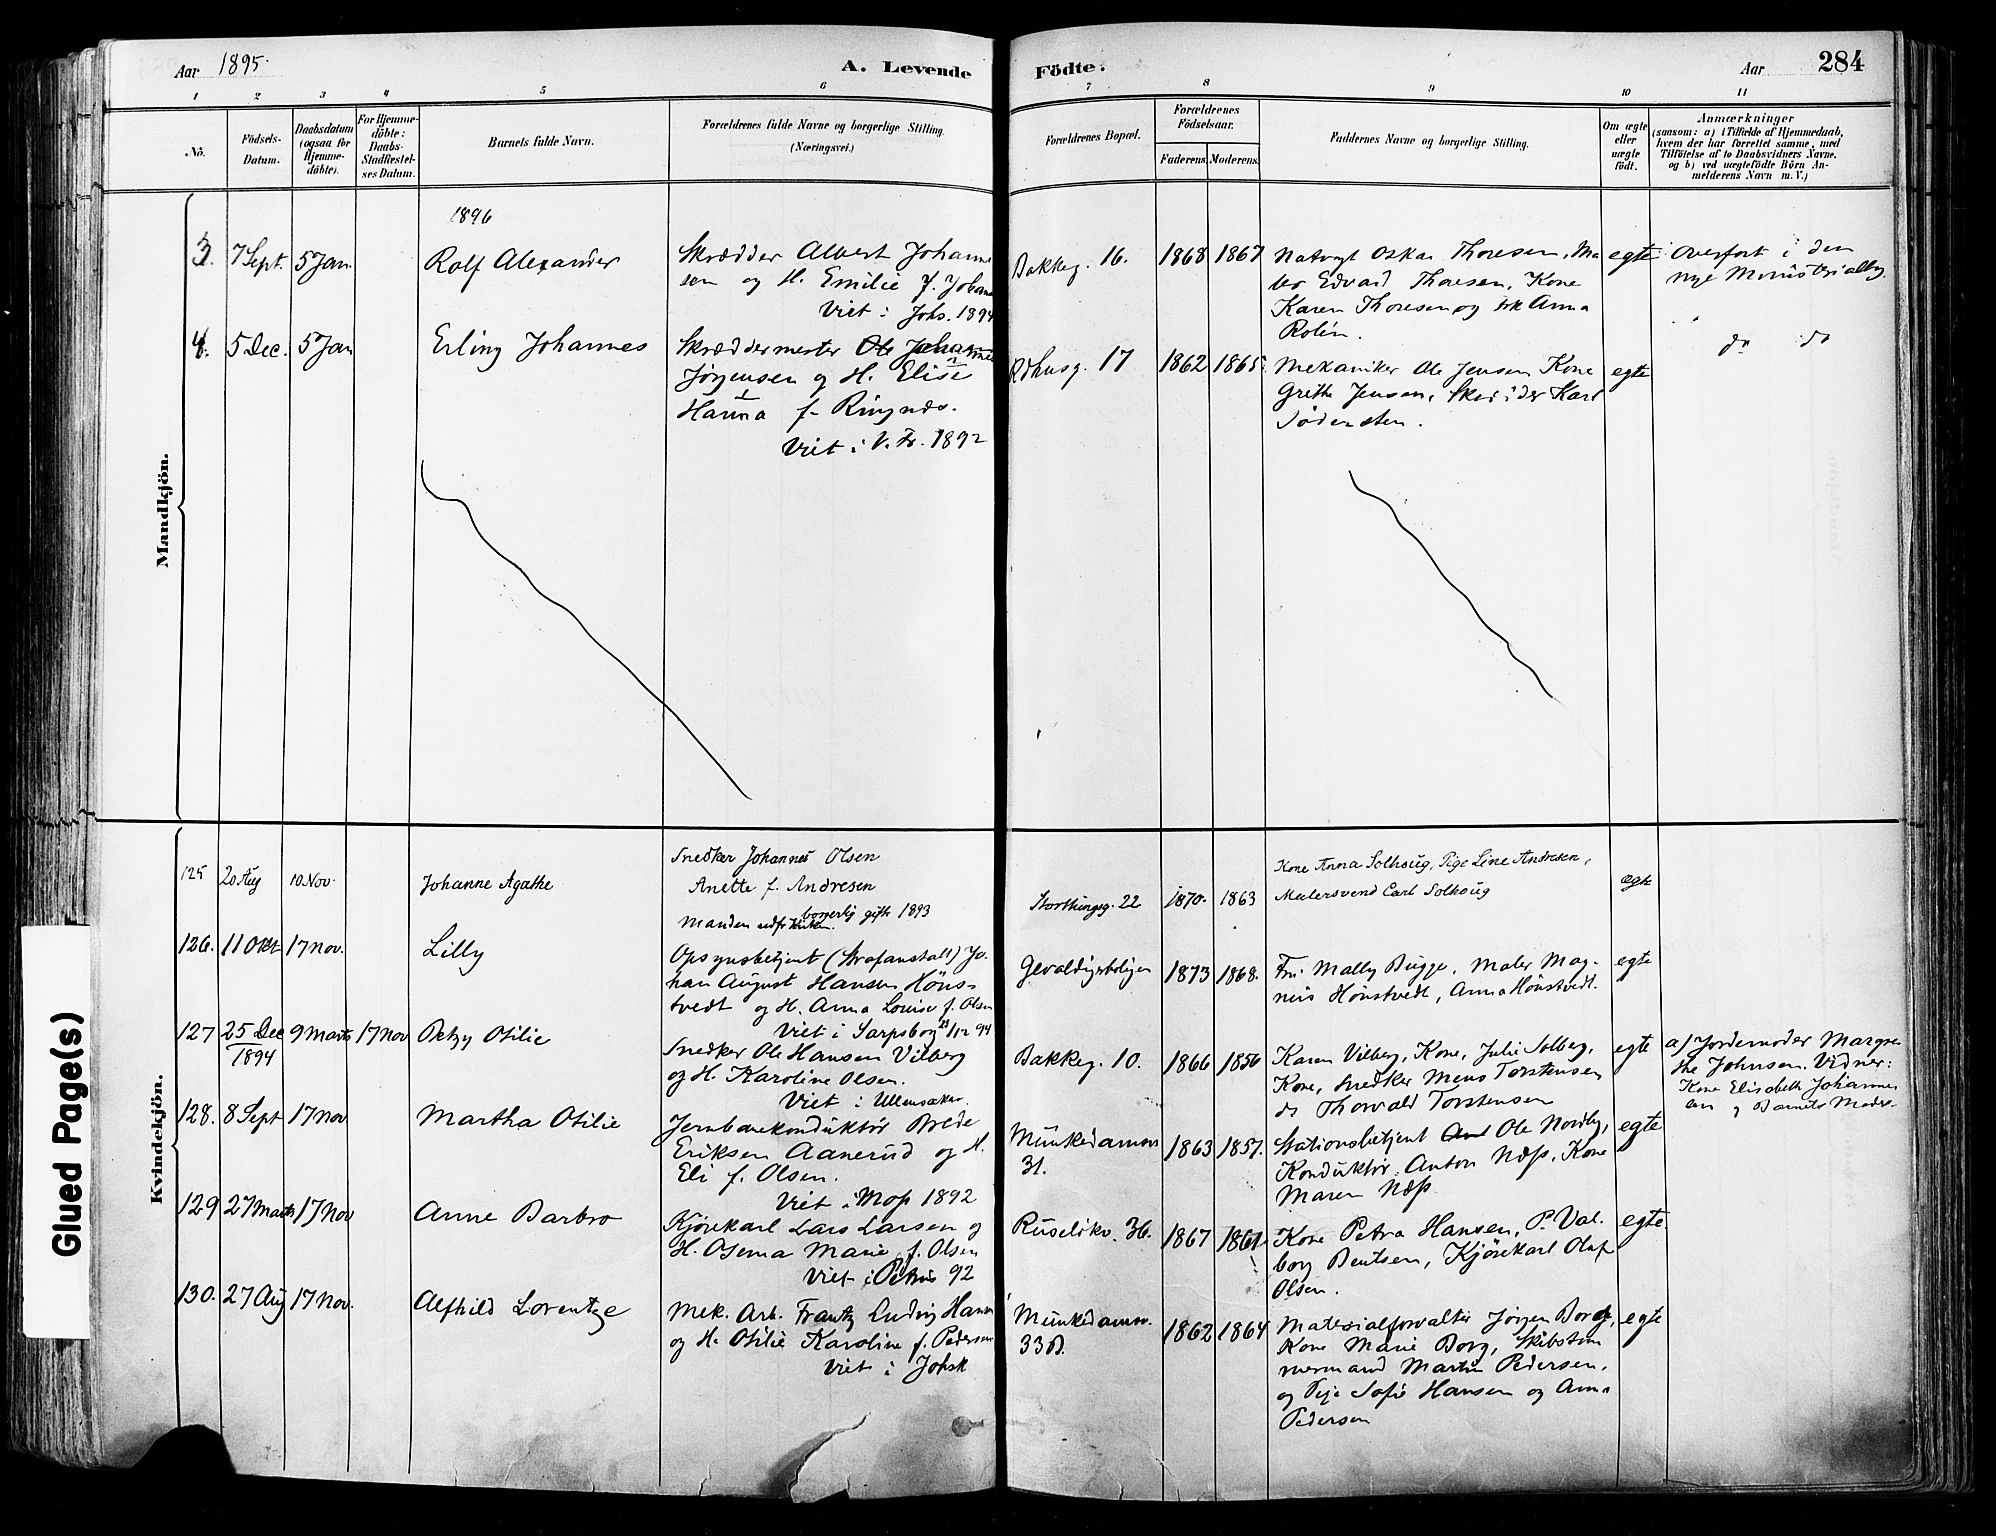 Aar 1895.
A. Levende
Födte.
Aar
284
1 2 3 4 5 6 7 8 9 10 11
No.
Födsels-
Datum.
Daabsdatum
(ogsaa for
Hjemme-
döbte).
For Hjemme-
döbte:
Daabs-
Stadfæstel-
ses Datum.
Barnets fulde Navn.
Forældrenes fulde Navne og borgerlige Stilling.
(Næringsvei.)
Forældrenes Bopæl.
Forældrenes
Födselsaar.
Faderens.
Moderens.
Faddernes Navne og borgerlige Stilling.
Om ægte
eller
uægte
födt.
Anmærkninger
(saasom: a) i Tilfælde af Hjemmedaab,
hvem der har forrettet samme, med
Tilföielse af to Daabsvidners Navne.
og b) ved uægtefödte Börn An-
melderens Navn m. V.)
Mandkjön.
1896
3. 7 Sept. 5 Jan. Rolf Alexander
Skrædder Albert Johanne
sen og H. Emilie f. Johan
Viet i Johs. 1894
Bakkeg. 16. 1868 1867
Natvgt Oskar Thoresen, Ma
Edvard Thoresen, Kone
Karen Thoresen og Frk Anna
Rolin.
egte
Overført i den
nye Ministerialbog
4. 5 Dec. 5 Jan Erling Johannes
Skræddermester Ole Johannes
Jørgensen og H. Elise
Hanna f. Ringnæs.
Viet i V. Fr. 1892
Rdhusg. 17 1862 1865.
Mekaniker Ole Jensen Kone
Grethe Jensen, Karl
Södersten.
egte
do do
Kvindekjön.
125 20 Aug 10 Nov. Johanne Agathe
Snedker Johannes Olsen
Anette f. Andresen
borgerlig gift 1893
Manden udf. Kirken.
Storthingsg. 22 1870. 1863
Kone Anna Solhoug, Pige Line Andresen,
Malersvend Carl Solhoug
ægte
126. 11 Okt 17 Nov. Lilly
Opsynsbetjent (Strafanstalt) Jo-
han August Hansen Höns-
tvedt og H. Anna Louise f. Olsen
Viet i Sarpsborg 28/12 94
Gevaldigerboligen 1873 1868.
Fru Mally Bugge, Maler Mag-
nus Hönstvedt, Anna Hönstvedt.
egte
127 25 Dec
1894
9 Marts 17 Nov Betzy Otilie
Snedker Ole Hansen Vilberg
og H. Karoline Olsen.
Viet i Ullensaker.
Bakkeg. 10. 1866 1856
Karen Vilberg, Kone, Julie Solberg,
Kone, Snedker Mens Torstensen
do Thorvald Torstensen
egte
a) Jordemoder Margre
the Johnsen. Vidner:
Kone Elisabeth Johannes
sen og Barnets Moder.
128. 8 Sept 17 Nov. Martha Otilie
Jernbanekonduktör Brede
Eriksen Aanerud og H.
Eli f. Olsen.
Viet i Moss 1892
Munkedamsv
31. 1863 1857.
Stationsbetjent Ole Nordby,
Konduktör Anton Næss, Kone
Maren Næss
egte
129 27 Marts 17 Nov Anne Barbro
Kjørekarl Lars Larsen og
H. Osema Marie f. Olsen
Viet i Petrus 92
Ruselökv. 36. 1867 1861
Kone Petra Hansen, P. Val-
borg Bentsen, Kjørekarl Olaf
Olsen.
egte
130. 27 Aug 17 Nov. Alfhild Lorentze
Mek. Arb. Frantz Ludvig Hansen
og H. Otilie Karoline f. Pedersen
Viet i Johsk
Munkedamsv.
33B. 1862 1864
Materialforvalter Jörgen Borg,
Kone Marie Borg, Skibstöm
mermand Martin Pedersen,
og Pige Sofie Hansen og Anna
Pedersen
egte
Glued Page(s)